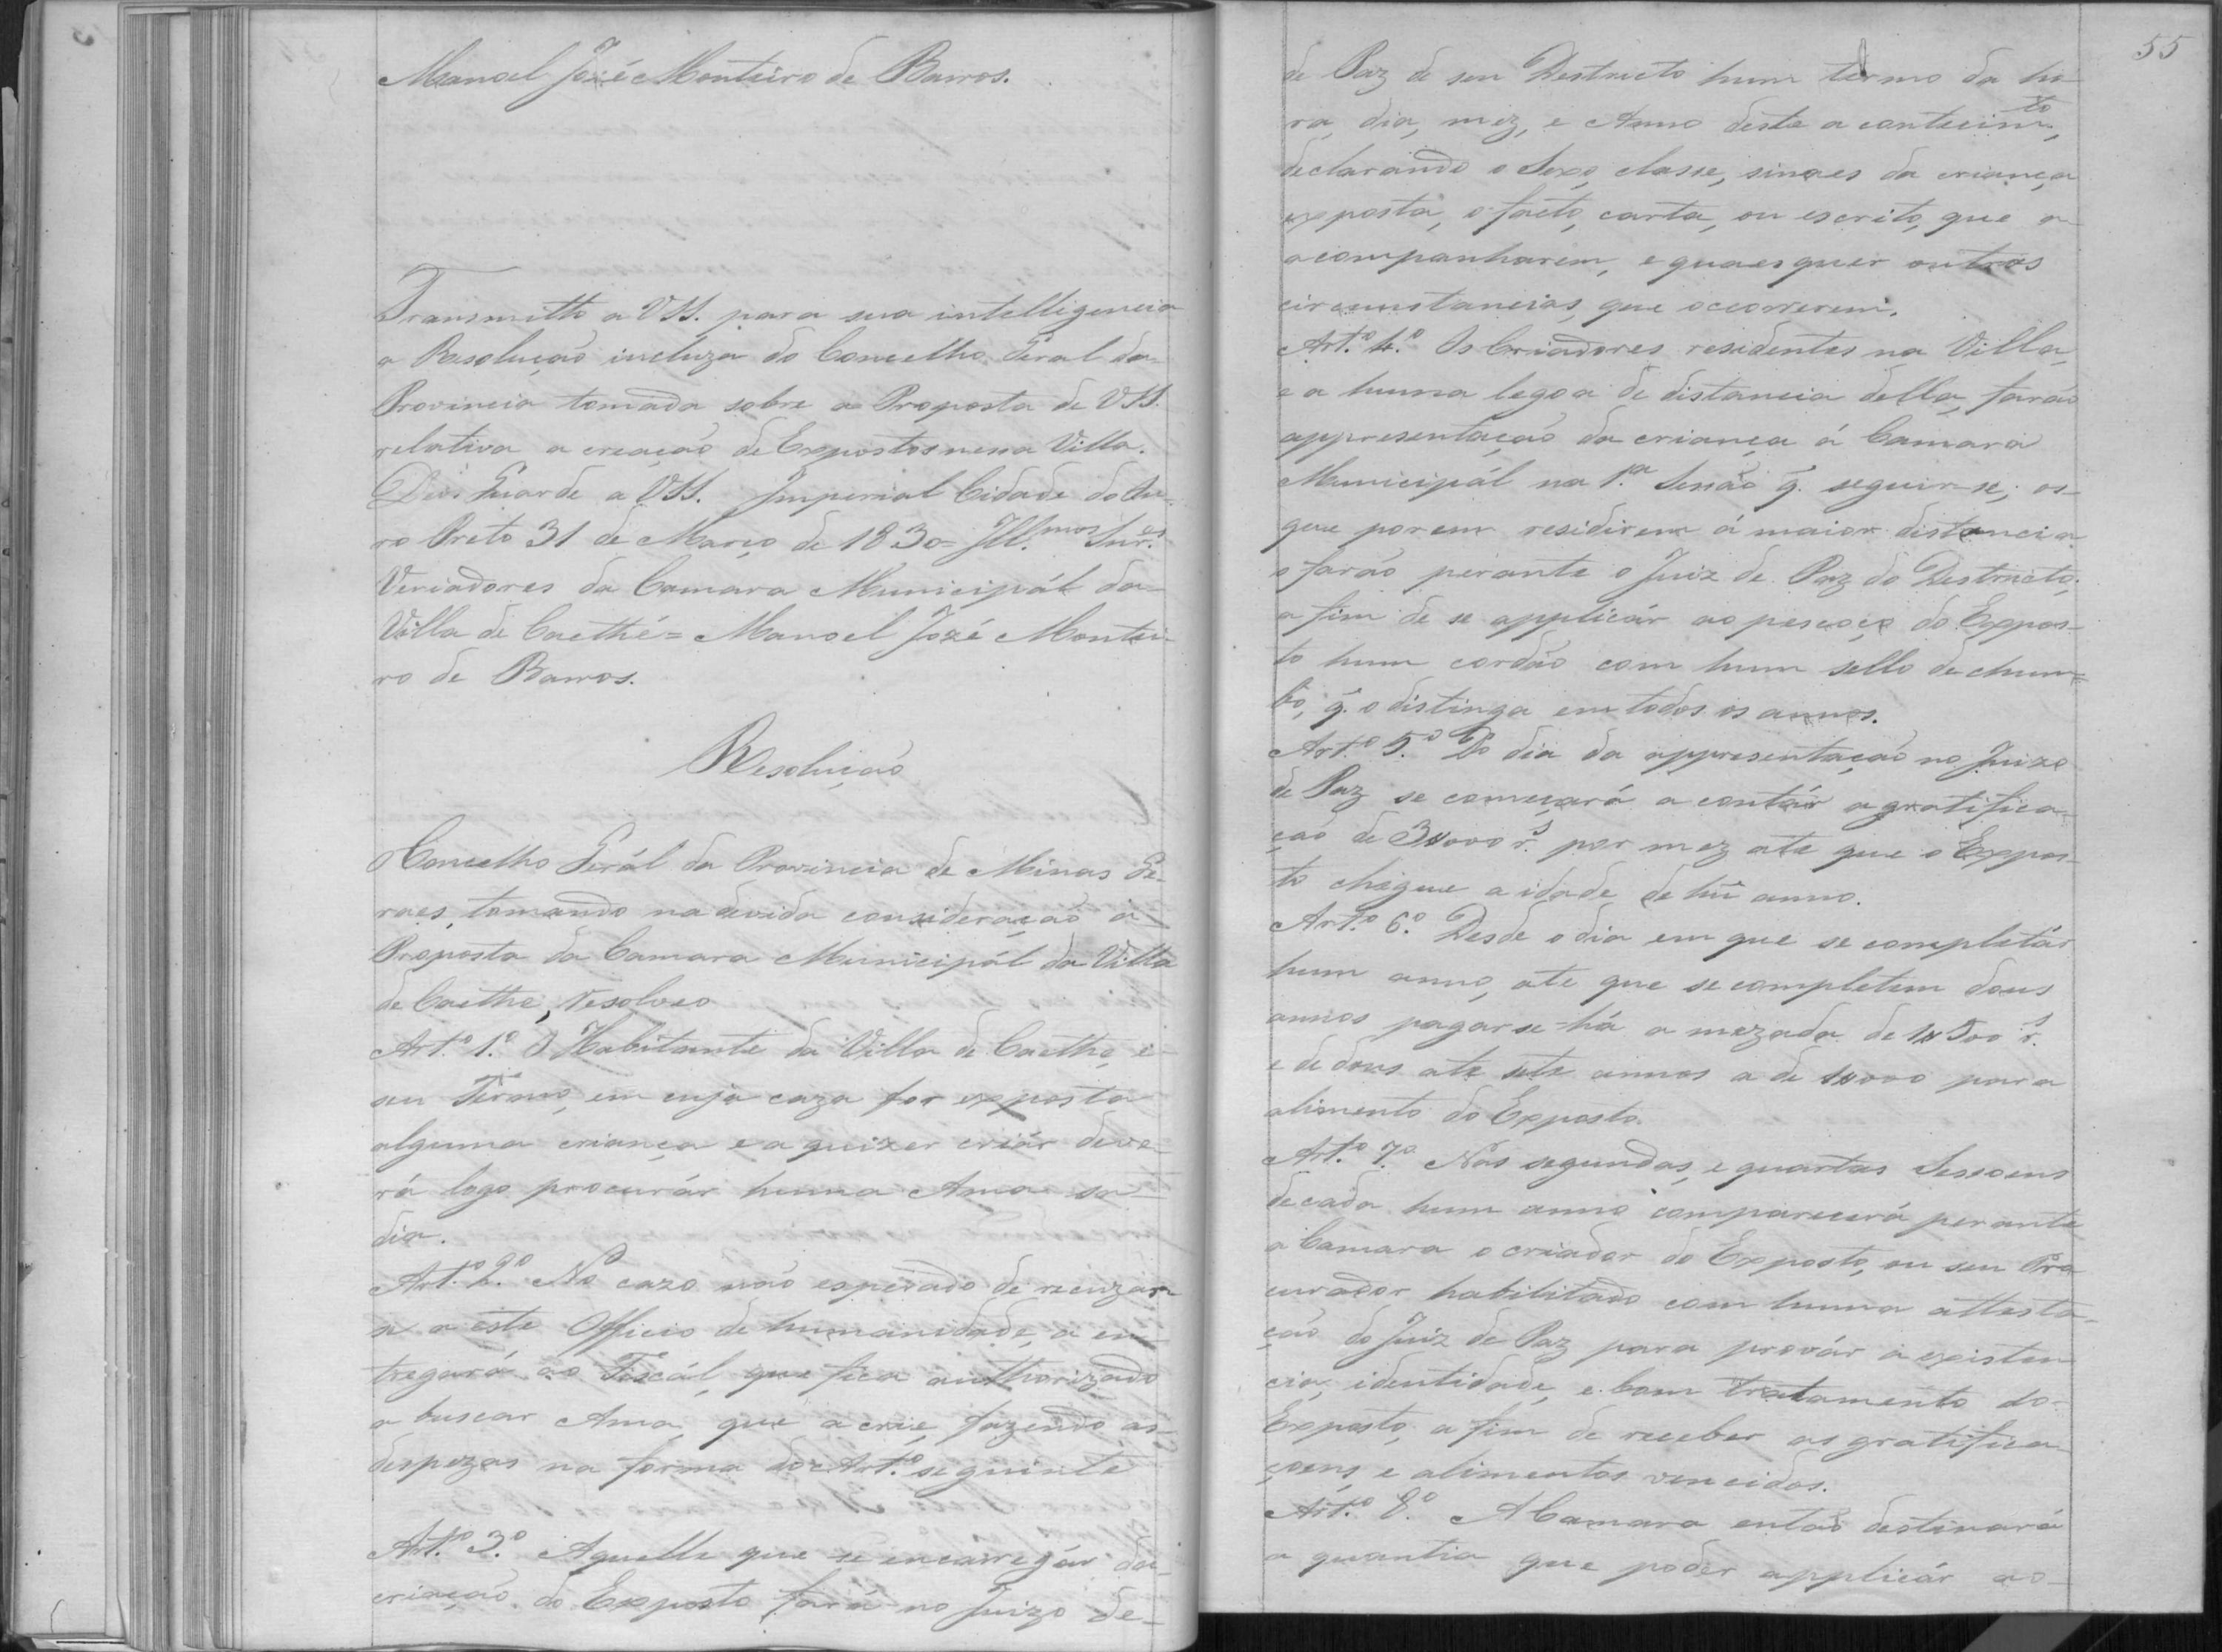 Manoel Jozé Monteiro de Barros.
Transmitto a VSS. para sua intelligencia
a Resolução incluza do Concelho Geral da
Provincia tomada sobre a Proposta de VSS.
relativa a creação de Expostos nessa Villa.
Deos Guarde a VSS. Imperial Cidade do Ou-
ro Preto 31 de Março de 1830= Ill.mos Snr.es
Veriadores da Camara Municipál da
Villa de Caethé= Manoel Jozé Montei-
ro de Barros.
Resolução
O Concelho Gerál da Provincia de Minas Ge-
raes, tomando na devida consideração a
Proposta da Camara Municipál da Villa
de Caethe, resolveo
Art.o 1.o O Habitante da Villa de Caethe, e
seu Termo, em cuja caza for exposta
alguma criança e a quizer criár deve-
rá logo procurár huma Ama sa-
dia.
Art.o 2.o No cazo não esperado de recuzar
se a este Officio de humanidade, a en-
tregará ao Fiscál, que fica authorizado
a buscar Ama, que a crie, fazendo as
despezas na forma do Art.o seguinte
Art.o 3.o Aquelle que se encarregár da
criação do Exposto fará no Juizo de-
55
de Paz de seu Destricto hum termo da ho-
ra, dia, mez, e Anno deste acontecim.to,
declarando o Sexo, classe, sinaes da criança
exposta, o facto, carta, ou escrito, que a
acompanharem, e quaesquer outras
circunstancias, que occorrerem.
Art.o 4.o Os Criadores residentes na Villa,
e a huma legoa de distancia della, farão
appresentação da criança á Camara
Municipál na 1.a Sessão q. seguir-se; os-
que porem residirem á maior distancia
o farão perante o Juiz de Paz do Destricto,
a fim de se applicár ao pescoço do Expos-
to hum cordão com hum sello de chum=
bo, q. o distinga em todos os annos.
Art.o 5.o Do dia da appresentação no Juizo
de Paz se começará a contár a gratifica-
ção de 3$000 r.s por mez ate que o Expos-
to chegue a idade de hũ anno.
Art.o 6.o Desde o dia em que se completár
hum anno, ate que se completem dous
annos pagar-se-há a mezada de 1$500 r.s
e de dous ate sete annos a de 1$000 para
alimento do Exposto.
Art.o 7.o Nas segundas, e quartas Sessoens
de cada hum anno comparecerá perante
a Camara o criador do Exposto, ou seu Pro
curador habilitado com huma attesta-
ção do Juiz de Paz para provár a existen
cia, identidade, e bom tratamento do
Exposto, a fim de receber as gratifica
çoens, e alimentos vencidos.
Art.o 8.o A Camara então destinará
a quantia que poder applicár ao-